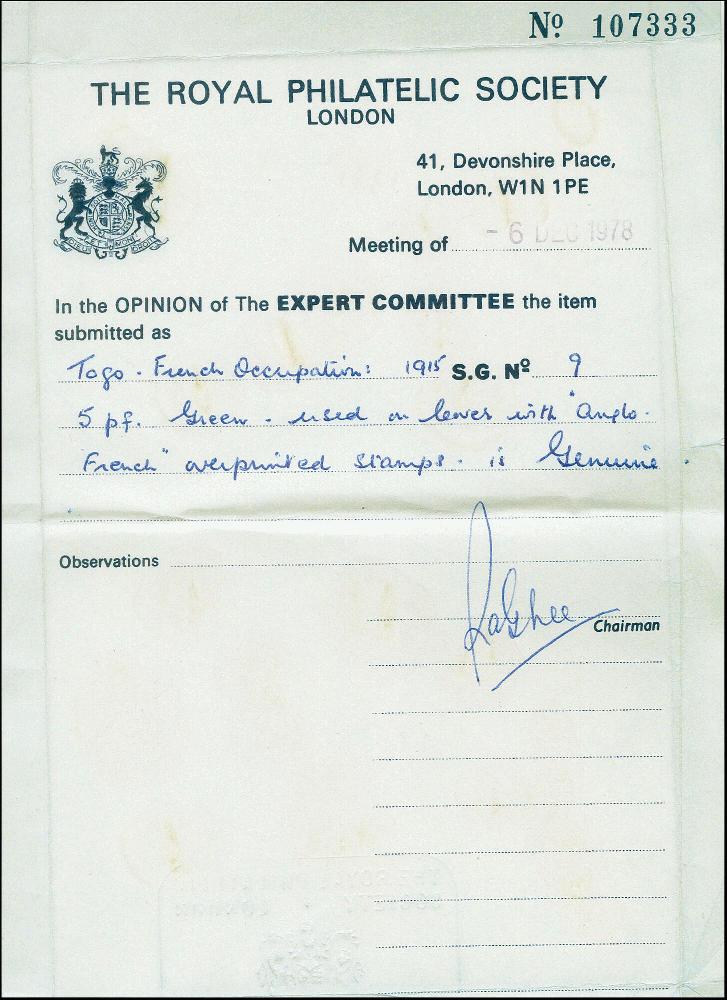 Nº 107333
THE ROYAL PHILATELIC SOCIETY
LONDON
41, Devonshire Place,
London, W1N 1PE
Meeting of - 6 DEC 1978
In the OPINION of The EXPERT COMMITTEE the item
submitted as
Togo - French Occupation: 1915 S.G. Nº 9
5 pf. Green - used on cover with "Anglo-
French" overprinted stamps - is Genuine.
Observations
Chairman